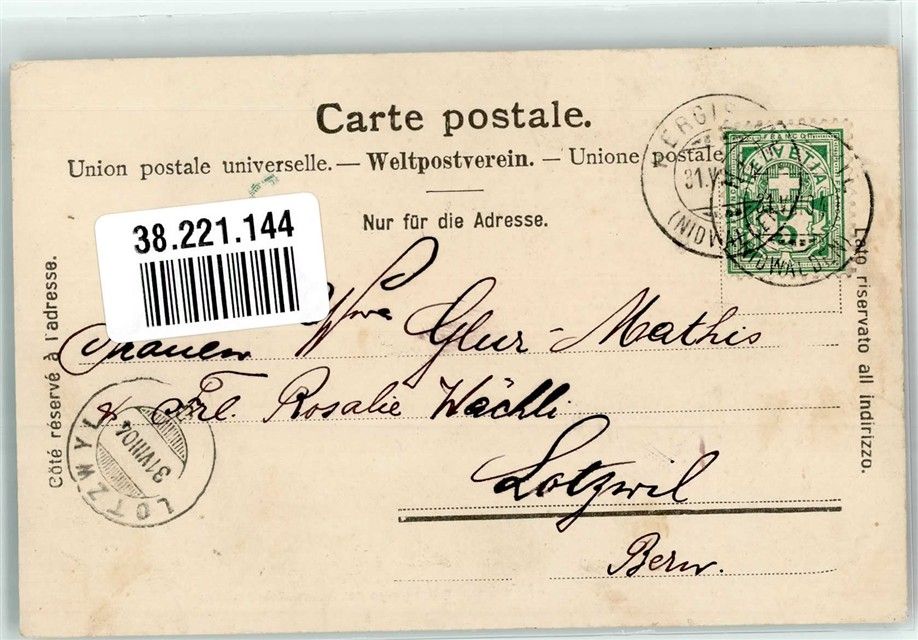 Carte postale.
Union postale universelle. — Weltpostverein. — Unione postale
Nur für die Adresse.
38.221.144
Côté réservé à l'adresse.
Lato riservato all indirizzo.
FRANCO
HELVETIA
5
HERGIS
31.V
(NIDWALDEN)
NIDWALDEN
Frauen Wwe Glur-Mathis
& Frl. Rosalie Wächli
Lotzwil
Bern.
LOTZWYL
31.VIII.04